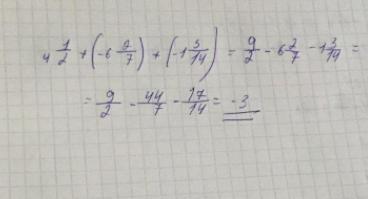 4 1/2 + (-6 2/7) + (-1 3/14) = 9/2 - 6 2/7 - 1 3/14 =
= 9/2 - 44/7 - 17/14 = -3